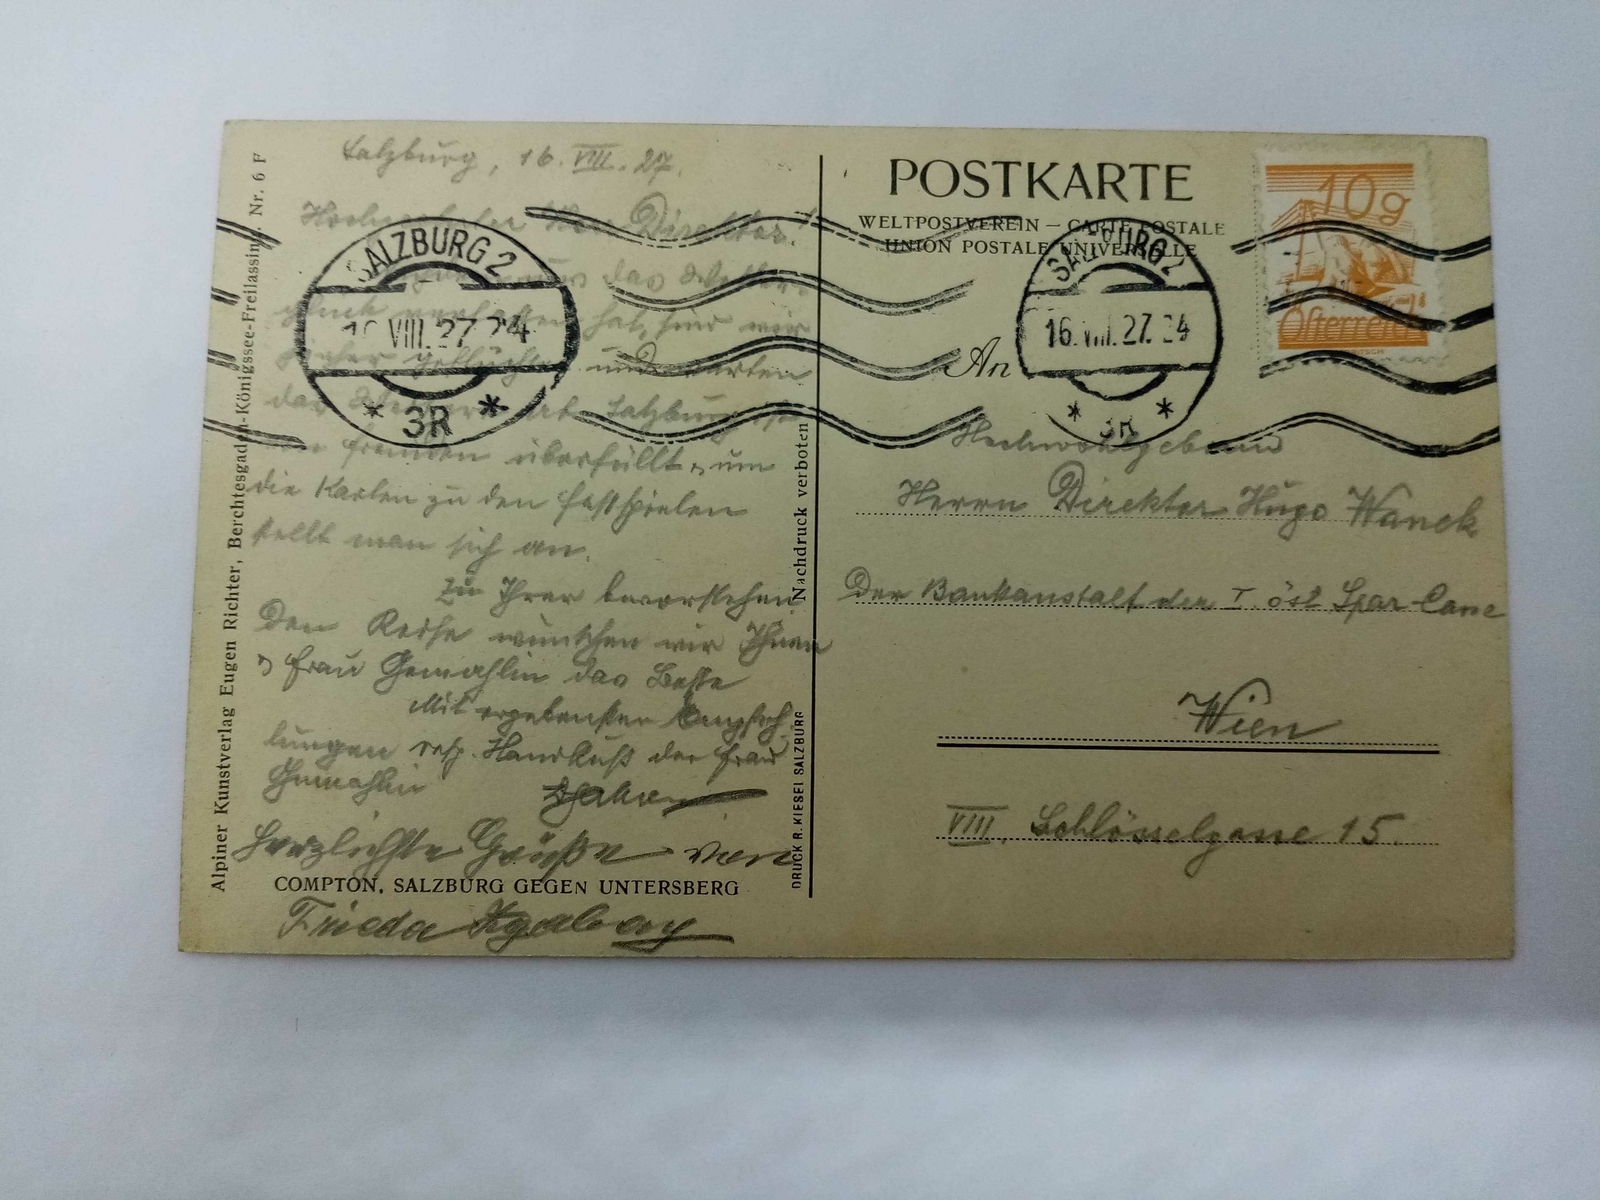 Salzburg, 16. VIII. 27.
Herr Direktor!
uns das Wetter
hat, sind wir
und warten
das Salzburg ist
von Fremden überfüllt, um
die Karten zu den Festspielen
stellt man sich an.
Zu Ihrer bevorstehen
den Reise wünschen wir Ihnen
Frau Gemahlin das Beste
Mit ergebensten Empfeh-
lungen resp. Handkuß der Frau
Gemahlin
Herzlichste Grüße von
Frieda
COMPTON, SALZBURG GEGEN UNTERSBERG
Alpiner Kunstverlag Eugen Richter, Berchtesgaden-Königssee-Freilassing. Nr. 6 F
Nachdruck verboten
DRUCK R. KIESEL SALZBURG
SALZBURG 2
16.VIII.27.24
* 3R *
POSTKARTE
WELTPOSTVEREIN — CARTE POSTALE
UNION POSTALE UNIVERSELLE
10g
Österreich
SALZBURG 2
16.VIII.27.24
* 3R *
An
Hochwohlgeboren
Herrn Direktor Hugo Wanek
Der Bankanstalt der I. öst Spar-Casse
Wien
VIII. Schlösselgasse 15.